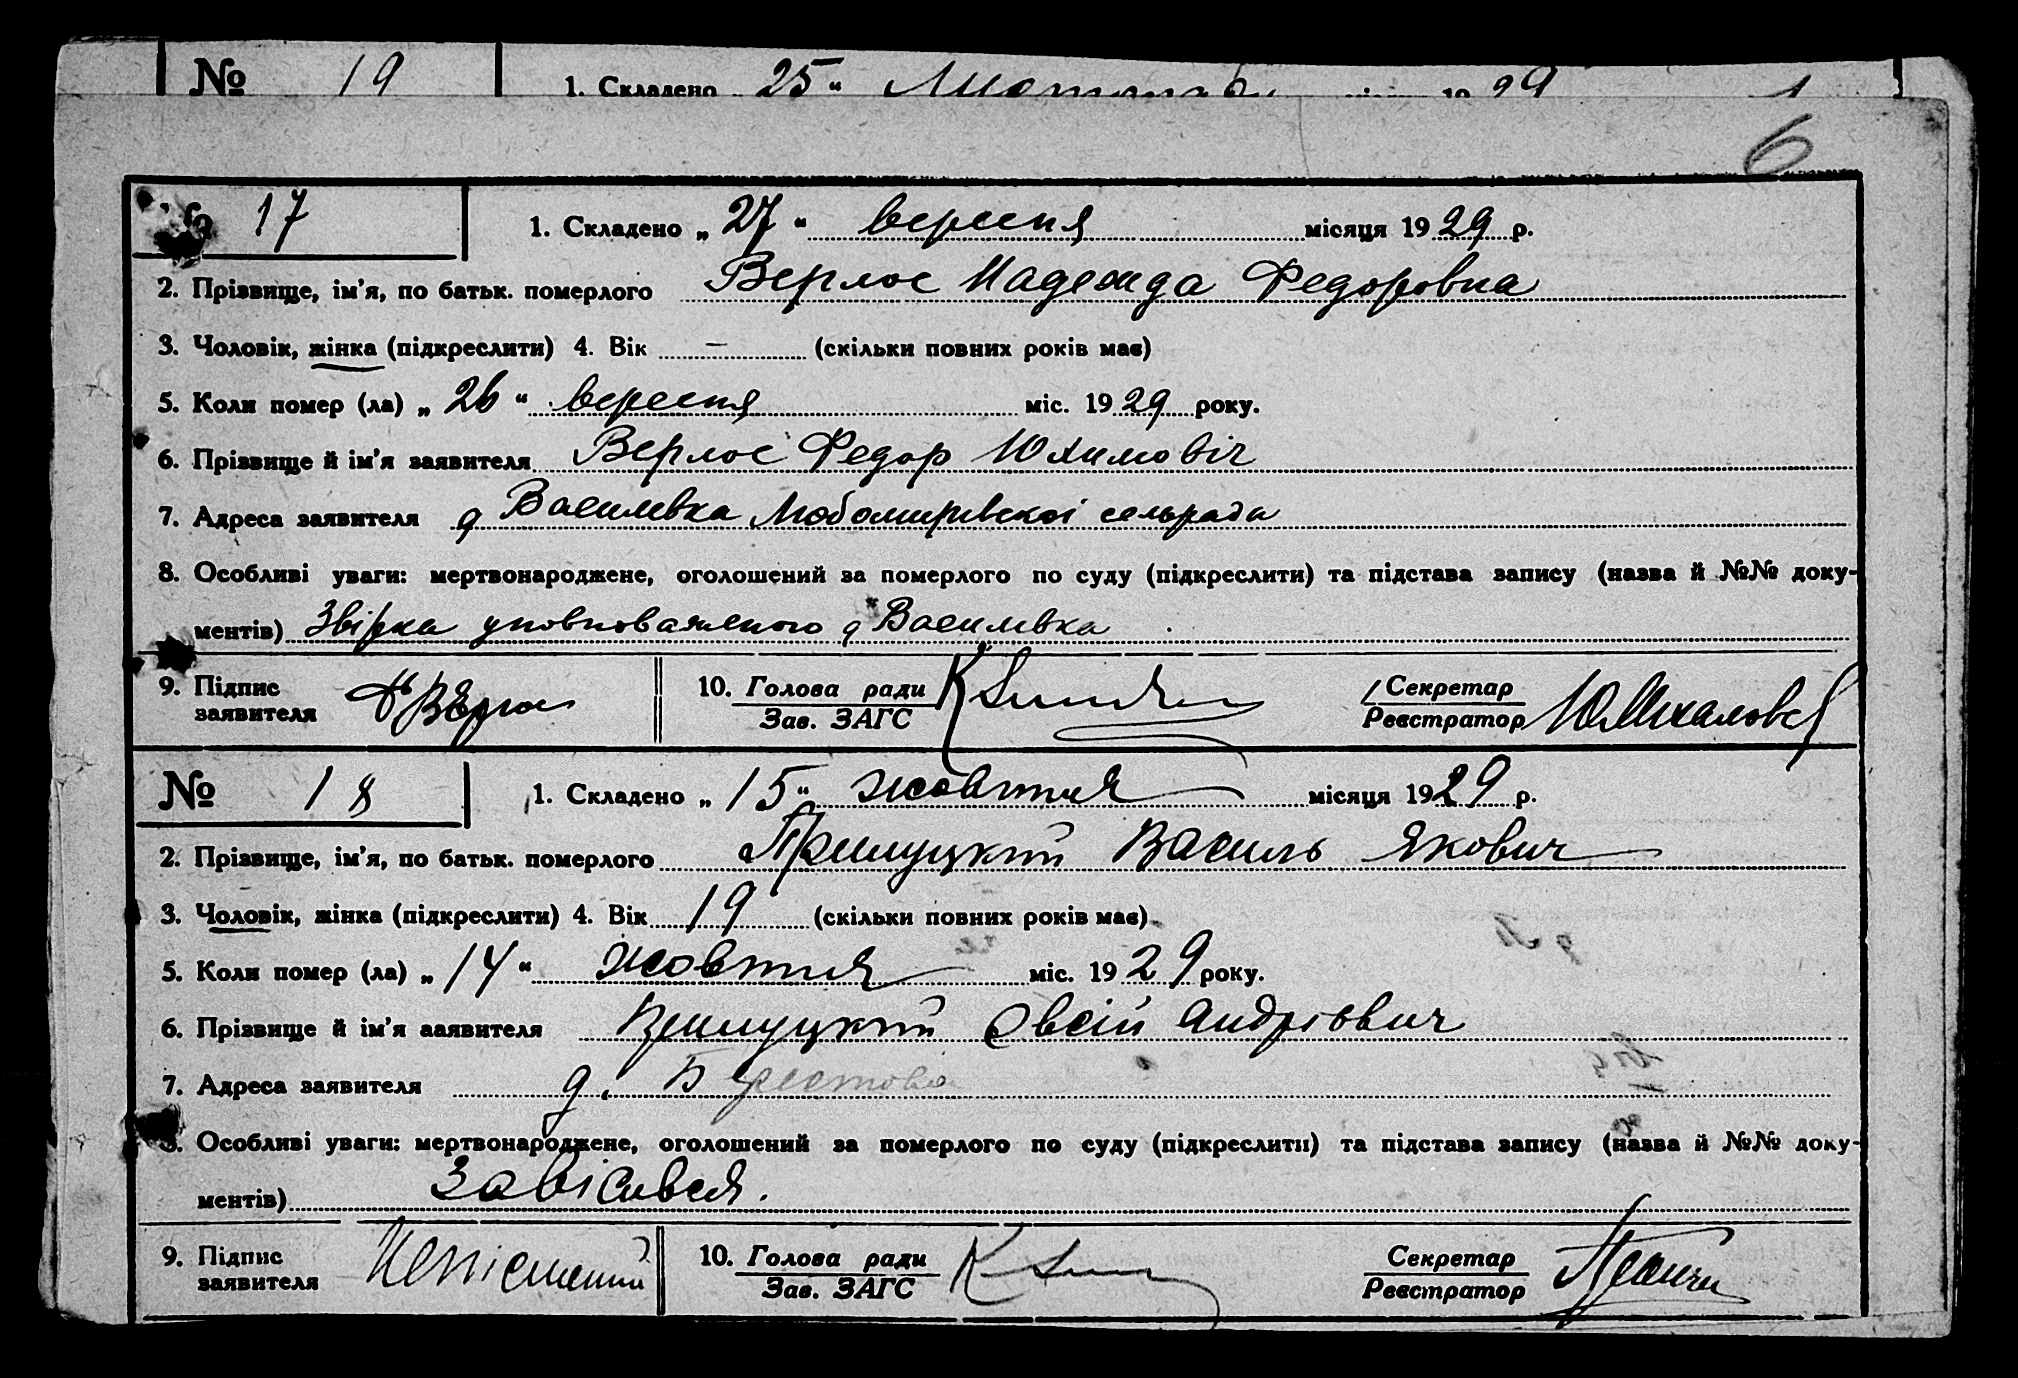 № 19 1. Складено „ 25 “ Листопада 19 29
6
№ 17 1. Складено „ 27 “ вересня місяця 19 29 р.
2. Прізвище, ім'я, по батьк. померлого Верлос Надежда Федоровна
3. Чоловік, жінка (підкреслити) 4. Вік — (скільки повних років має)
5. Коли помер (ла) „ 26 “ вересня міс. 19 29 року.
6. Прізвище й ім'я заявителя Верлос Федор Юхимовіч
7. Адреса заявителя д Василевка Любомирівскоі сельрада
8. Особливі уваги: мертвонароджене, оголошений за померлого по суду (підкреслити) та підстава запису (назва й №№ доку-
ментів) Звірка уповноваженого д Василевка
9. Підпис заявителя 10. Голова ради Зав. ЗАГС Секретар Реєстратор
№ 18 1. Складено „ 15 “ жовтня місяця 19 29 р.
2. Прізвище, ім'я, по батьк. померлого Прилуцкий Василь Якович
3. Чоловік, жінка (підкреслити) 4. Вік 19 (скільки повних років має)
5. Коли помер (ла) „ 14 “ жовтня міс. 19 29 року.
6. Прізвище й ім'я заявителя Прилуцкий Овсій Андрієвич
7. Адреса заявителя д. Берестова
8. Особливі уваги: мертвонароджене, оголошений за померлого по суду (підкреслити) та підстава запису (назва й №№ доку-
ментів) Завісився.
9. Підпис заявителя Неписменний 10. Голова ради Зав. ЗАГС Секретар Реєстратор